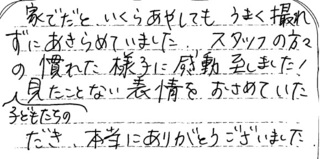 家でだと、いくらあやしても うまく撮れ
ずにあきらめていました… スタッフの方々
の 慣れた 様子に 感動 至しました!
見たことない 表情を おさめていた
子どもたちの
だき、本当にありがとうございました